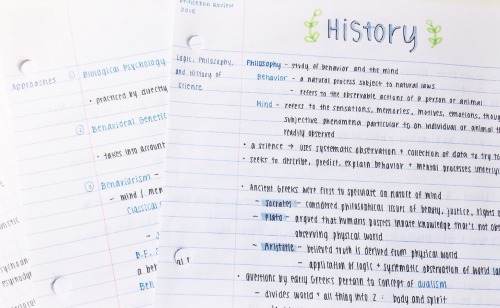 Princeton Review
History
Logic, Philosophy,
and History of
Science
Philosophy - study of behavior and the mind
Behavior - a natural process subject to natural laws
- refers to the observable actions of a person or animal
Mind - refers to the sensations, memories, motives, emotions,
subjective phenomena particular to an individual or animal
readily observed
• a science → uses systematic observation + collection of data to try
• seeks to describe, predict, explain behavior + mental processes
• Ancient Greeks were first to speculate on nature of mind
- Socrates - considered philosophical issues of beauty, justice, rights
- Plato - argued that humans possess innate knowledge that's not
observing physical world
- Aristotle - believed truth is derived from physical world
- application of logic + systematic observation of world
• Questions by early Greeks pertain to concept of dualism
- divides world + all things into 2: body and spirit
Approaches
① Biological Psychology
• practiced by directly
② Behavioral Genetic
• takes into account
③ Behaviorism -
- mind /
Classical
B.F.
a
Beh